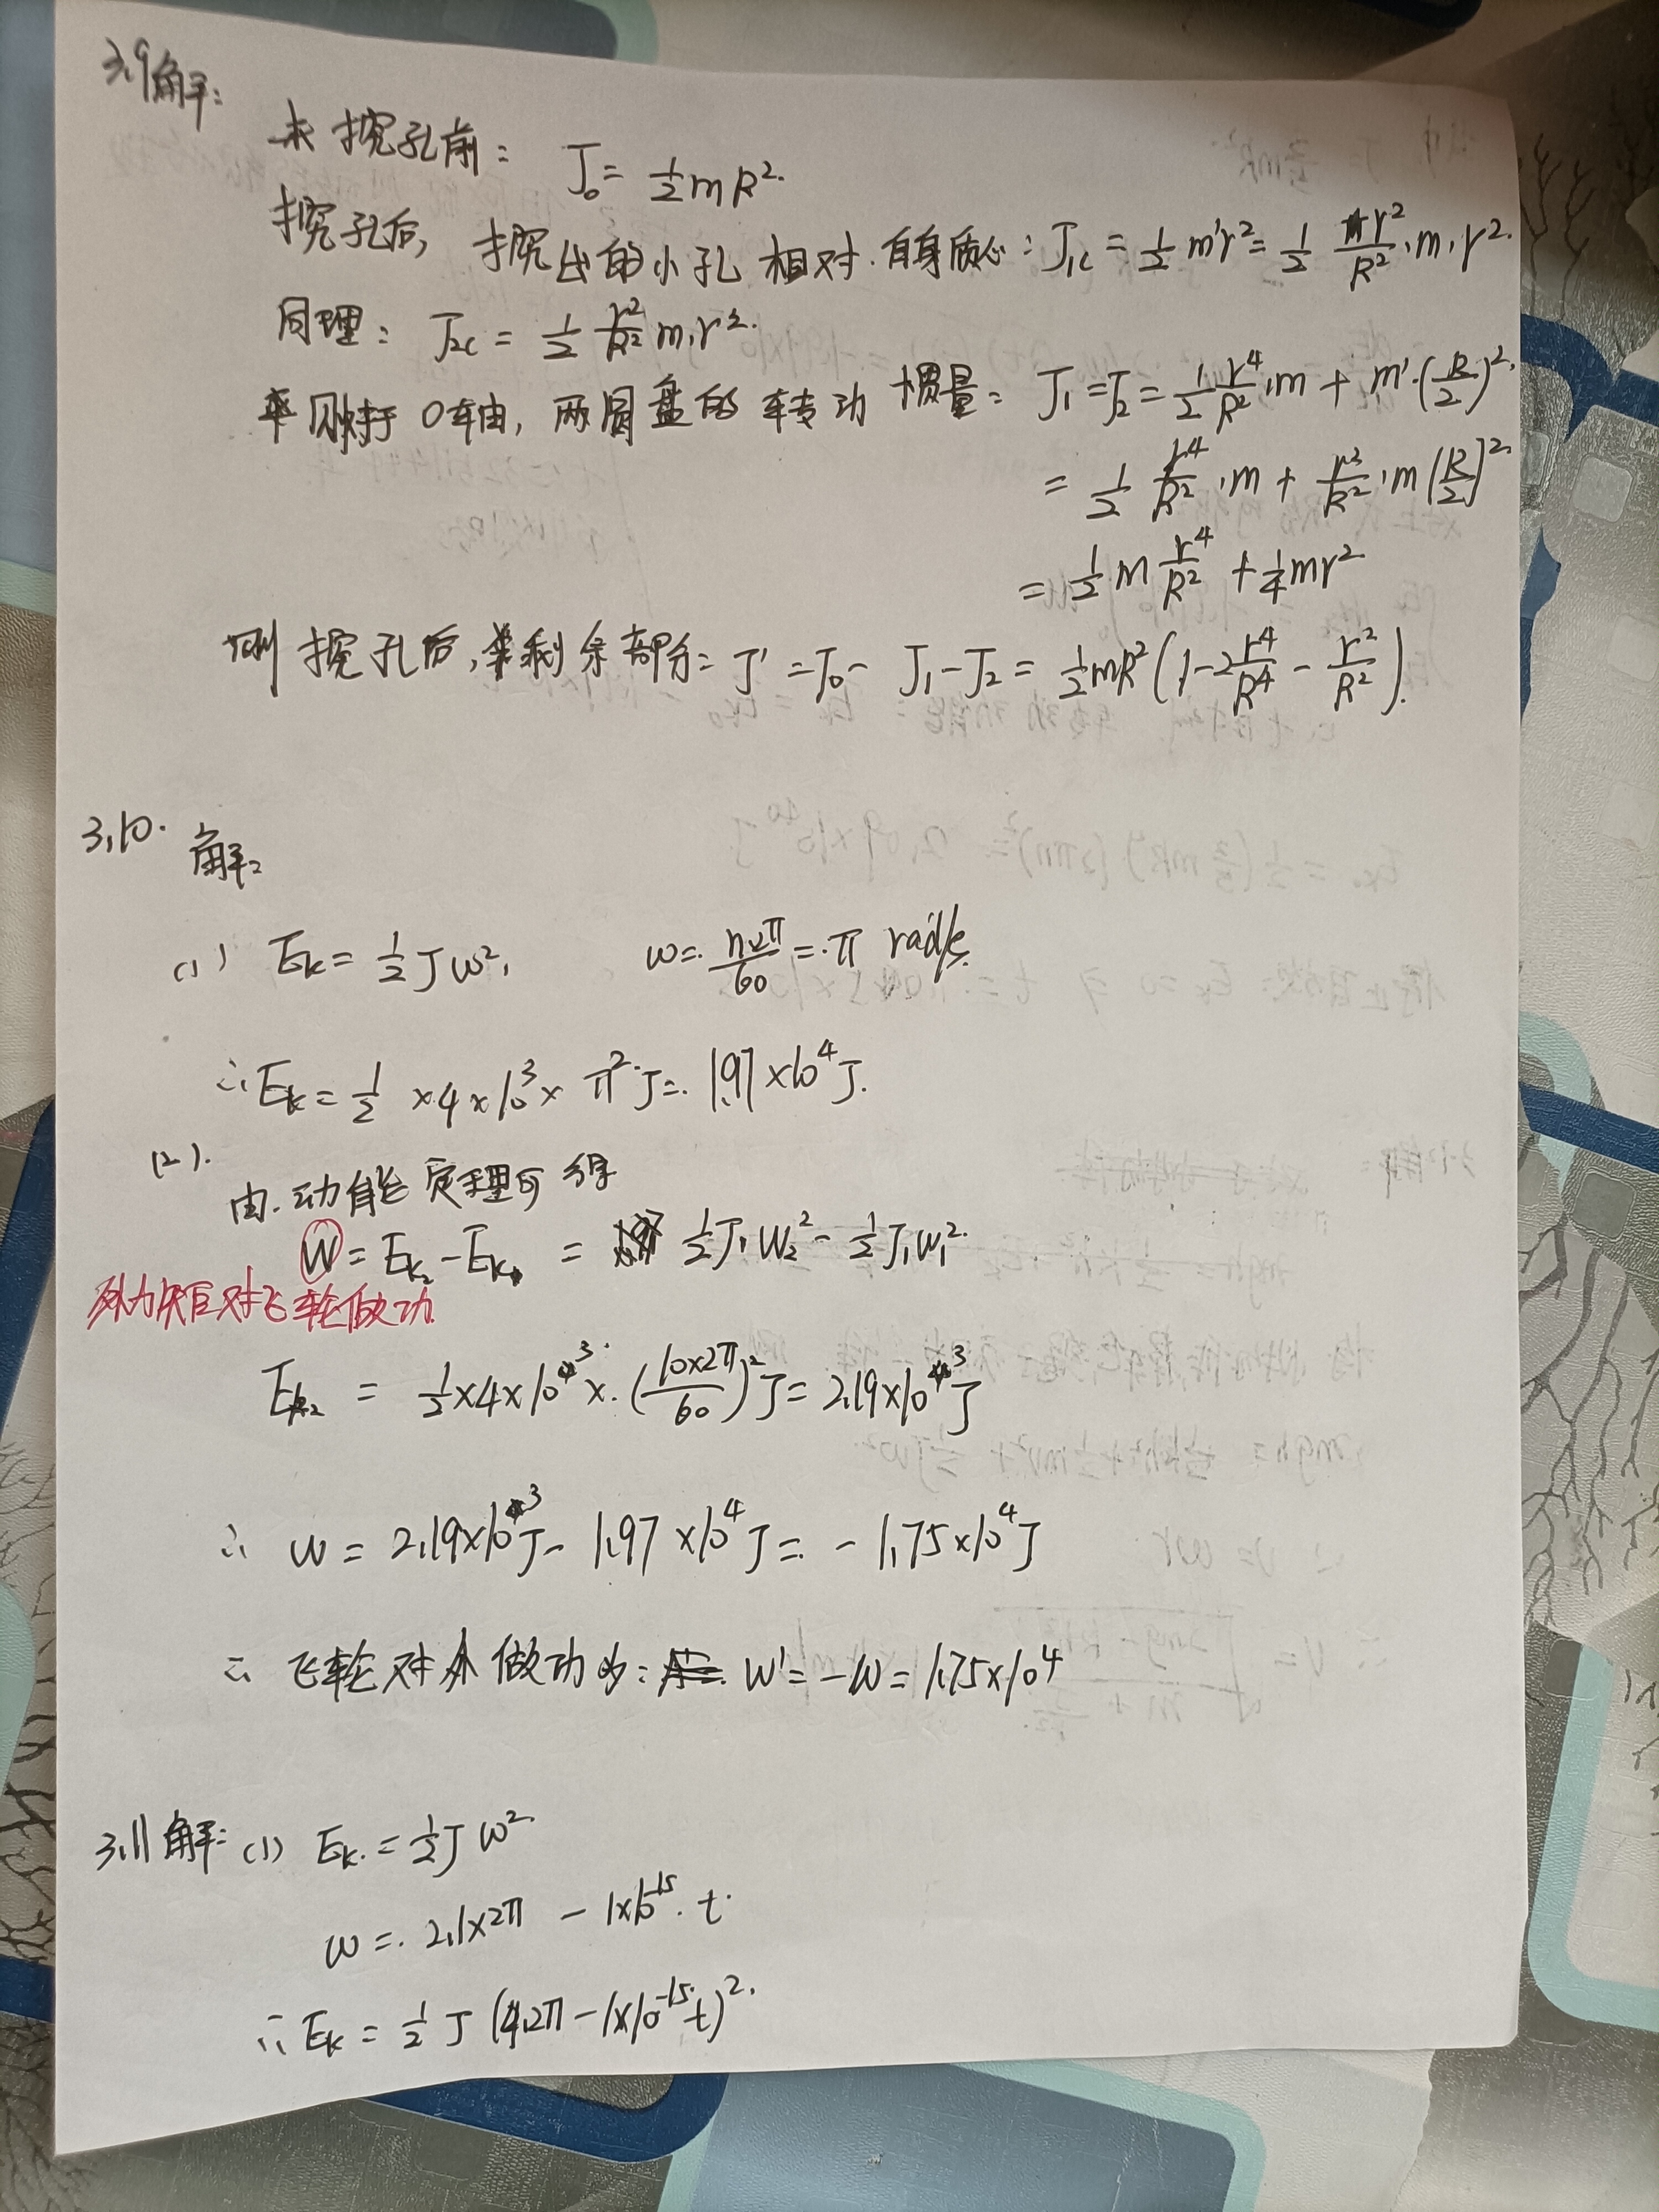 3.9解:
未挖孔前: J₀ = ½mR².
挖孔后, 挖出的小孔相对自身质心: J₁c = ½m'r² = ½ r²/R²·m·r².
同理: J₂c = ½ r²/R² m·r².
则对于O轴, 两圆盘的转动惯量: J₁ = J₂ = ½ r⁴/R²·m + m'·(R/2)².
= ½ r⁴/R²·m + r²/R²·m(R/2)².
= ½m r⁴/R² + ¼mr²
则挖孔后, 剩余部分: J' = J₀ - J₁ - J₂ = ½mR²(1 - 2r⁴/R⁴ - r²/R²).
3.10. 解:
(1) Eₖ = ½Jω², ω = n×2π/60 = π rad/s.
∴ Eₖ = ½ ×4×10³× π² J = 1.97×10⁴J.
(2).
由动能定理可得
W = Eₖ₂ - Eₖ₁ = ½J₁W₂² - ½J₁W₁².
外力矩对飞轮做功.
Eₖ₂ = ½×4×10³×(10×2π/60)² J = 2.19×10³J
∴ W = 2.19×10³J - 1.97×10⁴J = -1.75×10⁴J
∴ 飞轮对外做功为: W' = -W = 1.75×10⁴
3.11 解: (1) Eₖ = ½Jω².
ω = 2.1×2π - 1×10⁻¹⁵·t.
∴ Eₖ = ½J(4.2π - 1×10⁻¹⁵t)².